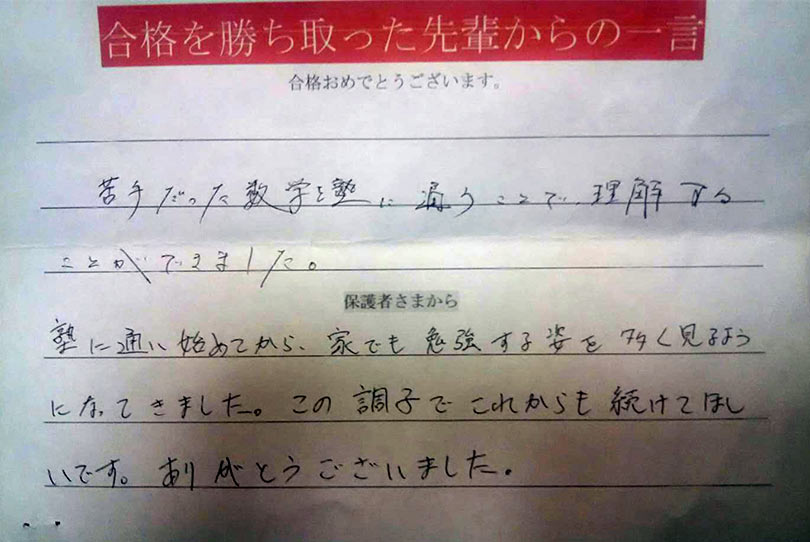 合格を勝ち取った先輩からの一言
合格おめでとうございます。
苦手だった数学を塾に通うことで、理解する
ことができました。
保護者さまから
塾に通い始めてから、家でも勉強する姿を多く見るよう
になってきました。この調子でこれからも続けてほし
いです。ありがとうございました。